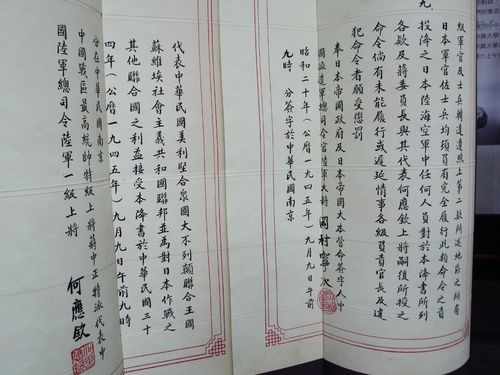 級軍官及士兵轉達遵照上第二款所述地區之所有
日本軍官佐士兵均須負有完全履行此類命令之責
九
投降之日本陸海空軍中任何人員對於本降書所列
各款及蔣委員長與其代表何應欽上將嗣後所授之
命令倘有未能履行或遲延情事各級負責官長及違
犯命令者願受懲罰
奉日本帝國政府及日本帝國大本營命簽字人中
國派遣軍總司令官陸軍大將 岡村寧次
昭和二十年(公曆一九四五年)九月九日午前
九時 分簽字於中華民國南京
代表中華民國美利堅合眾國大不列顛聯合王國
蘇維埃社會主義共和國聯邦並為對日本作戰之
其他聯合國之利益接受本降書於中華民國三十
四年(公曆一九四五年)九月九日午前九時
分在中華民國南京
中國戰區最高統帥特級上將蔣中正特派代表中
國陸軍總司令陸軍一級上將
何應欽